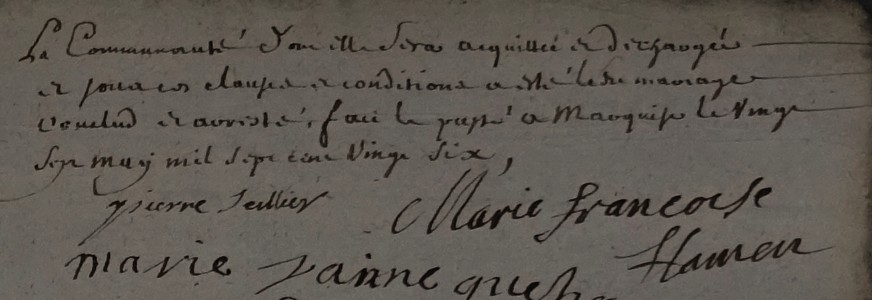 La Communauté dont elle sera acquittée et dechargée
et sous ces clauses et conditions a esté ledit mariage
conclud et arresté, fait et passé a Marquise le vingt
sept may mil sept cent vingt six,
pierre sellier Marie francoise
marie Janne Hamen